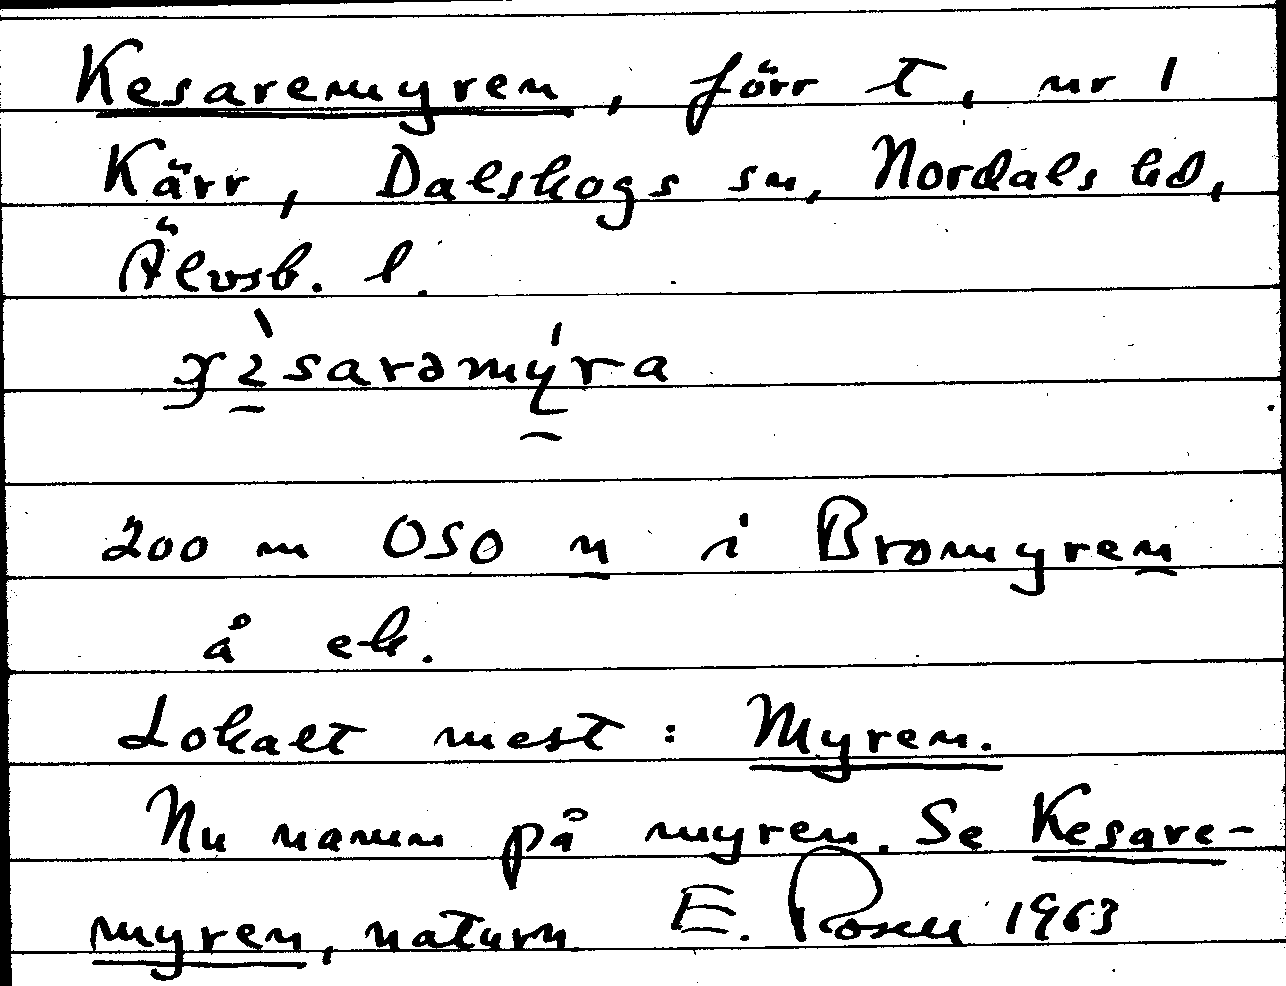 Kesaremyren, förr t, nr 1
Kärr, Dalskogs sn, Nordals hd,
Älvsb. l.
200 m OSO n i Bromyren
å ek.
Lokalt mest: Myren.
Nu namn på myren. Se Kesare-
myren, naturn. E. Rosell 1963